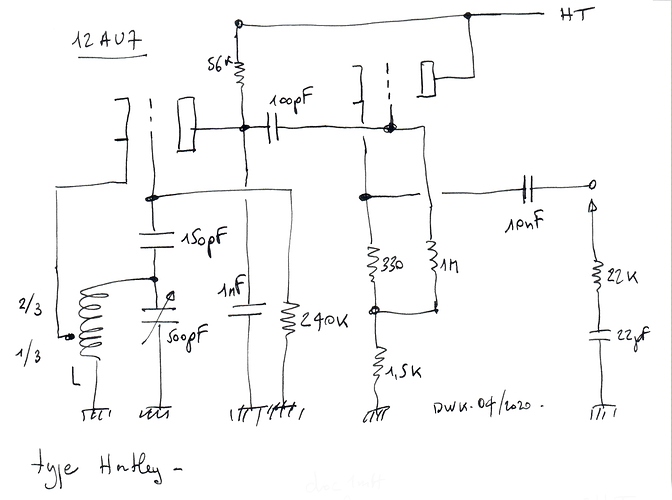 HT
12 AU7
56K
100pF
150pF
10nF
330
1M
22K
2/3
1nF
500pF
240K
22pF
1/3
L
1,5K
DWK-04/2020.
type Hartley -